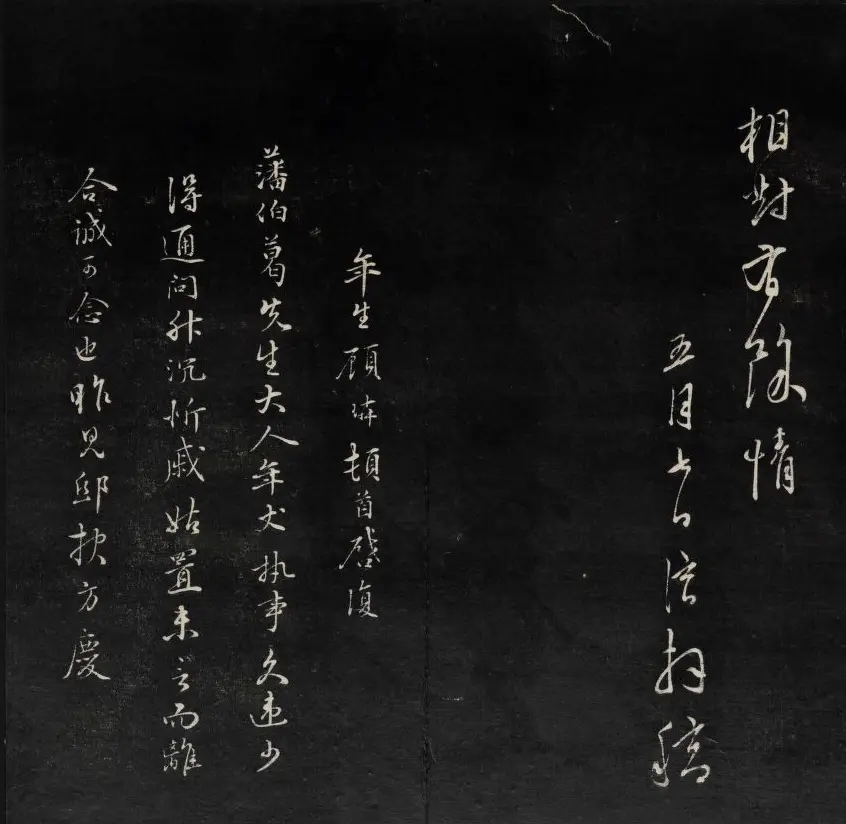 相對有餘情
五月七日信拜稿
年生顧璘頓首啓復
藩伯葛先生大人年丈執事久違少
得通問升沉忻戚姑置未言而離
合誠可念也昨見邸抄方慶